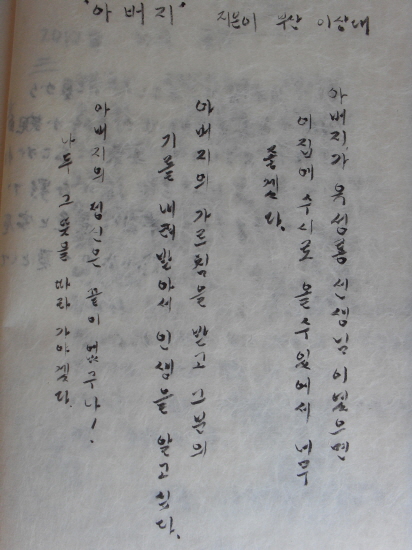 "아버지" 지은이 부산 이상대
아버지가 옥성룡 선생님이 없으면
이집에 수시로 올수없어서 너무
즐겁다.
아버지의 가르침을 받고 그분의
기를 내려 받아서 인생을 알고 싶다.
아버지의 정기는 끝이 없구나!
나도 그 뜻을 따라 가야겠다.